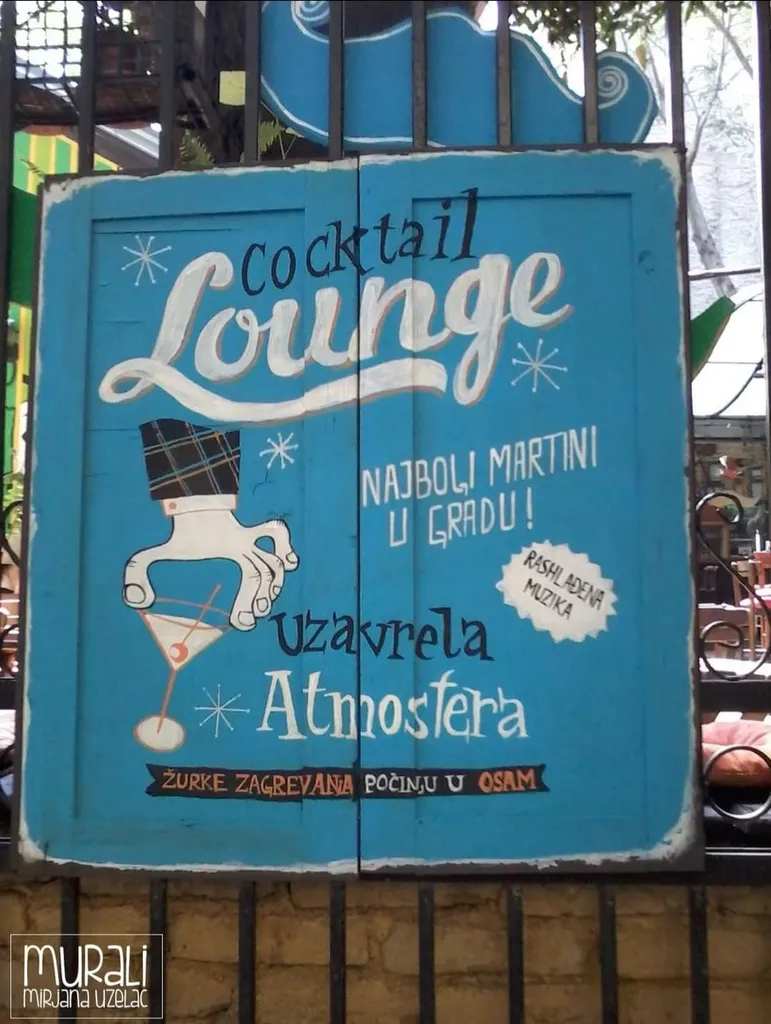 Cocktail
Lounge
NAJBOLJI MARTINI
U GRADU!
RASHLAĐENA
MUZIKA
uzavrela
Atmosfera
ŽURKE ZAGREVANJA POČINJU U OSAM
MURALI
MIRJANA UZELAC